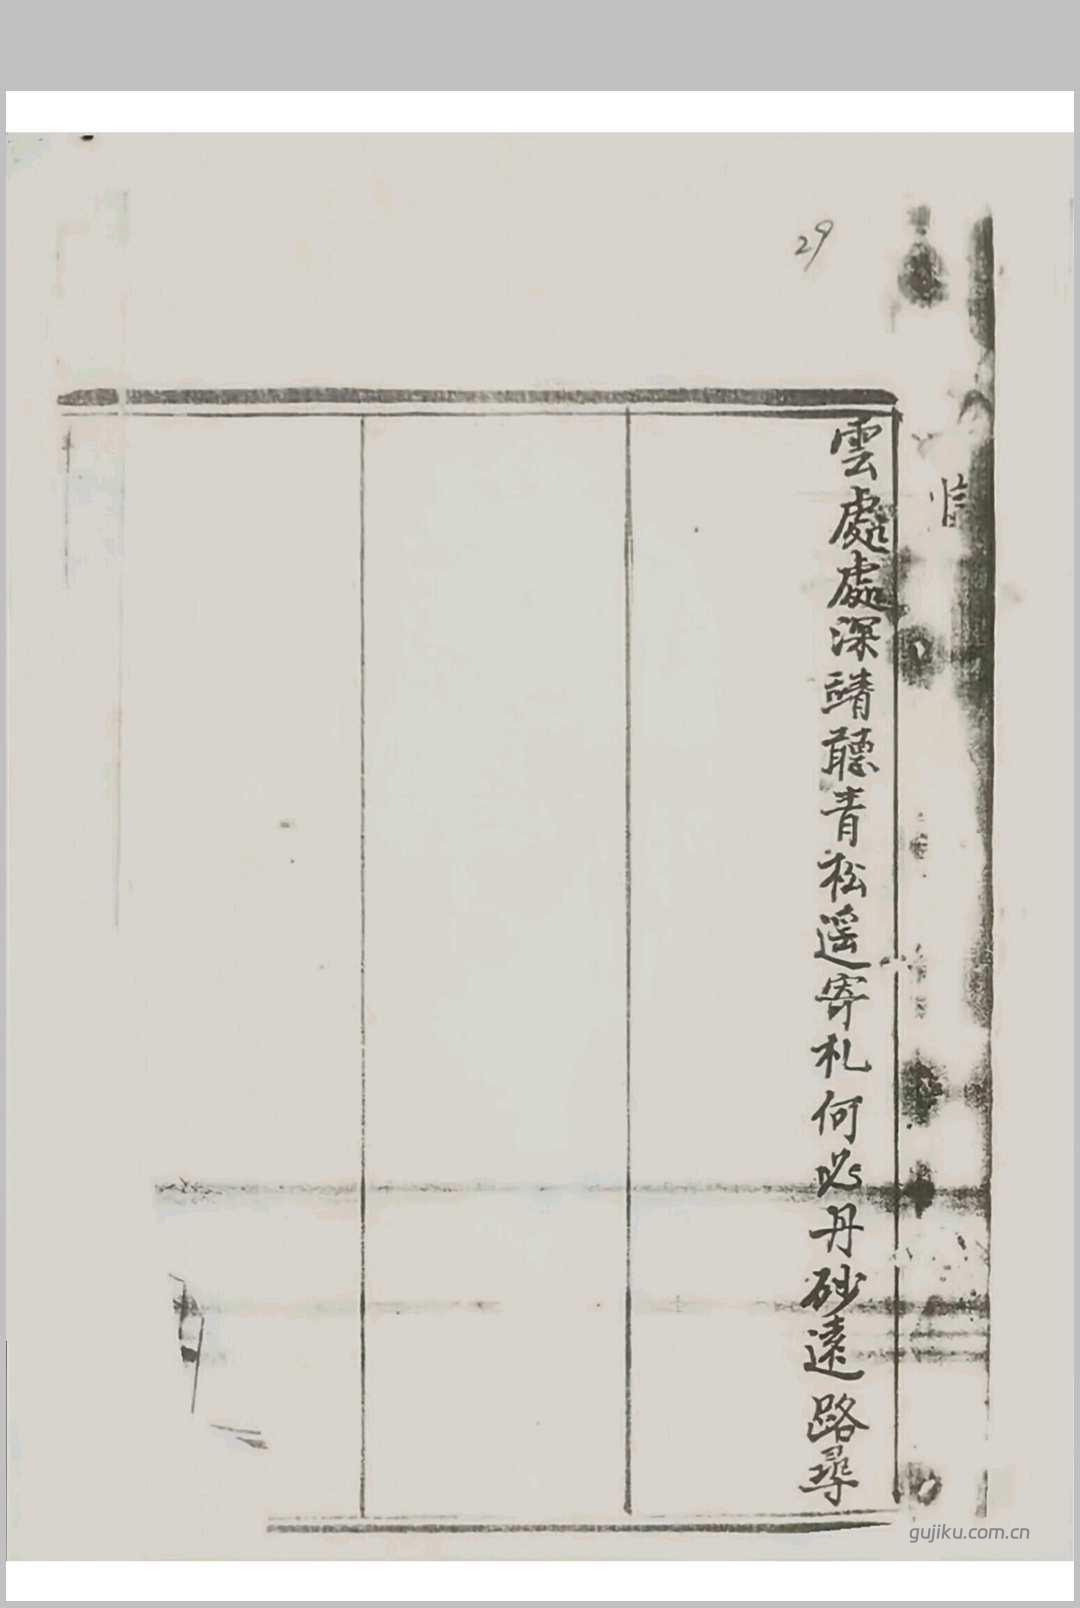 29
雲處處深請聽青松遥寄札何必丹砂遠路尋
gujiku.com.cn